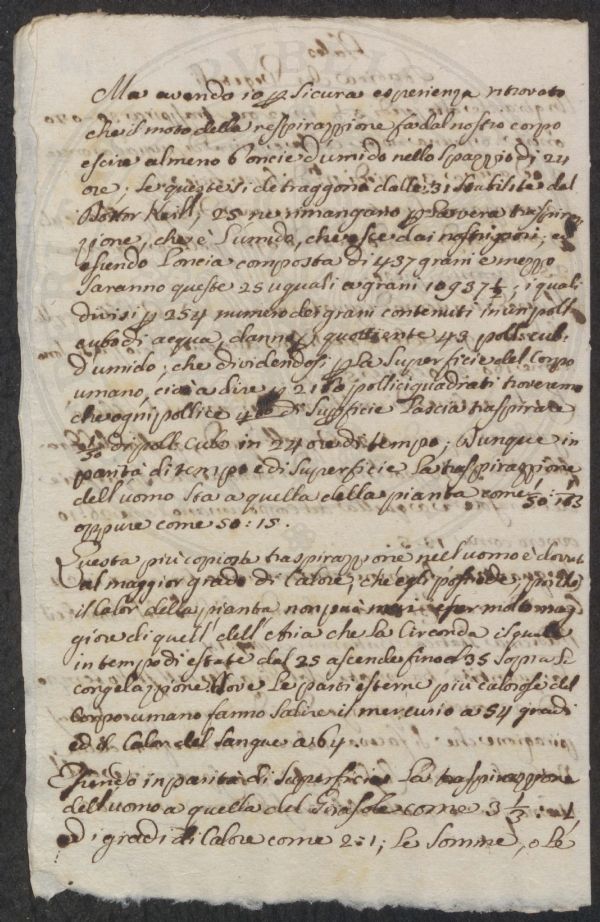 Ma avendo io p sicura esperienza ritrovato
che il moto della respirazzione fa dal nostro corpo
escire almeno 6 oncie d'umido nello spazzio di 24
ore; se queste si detraggono dalle 31 stabilite dal
Dottor Keill, 25 ne rimangano p la vera traspira
zione, che è l'umido, che esce dai nostri pori; ed
essendo l'oncia composta di 437 grani e mezzo
saranno queste 25 uguali a grani 10937 1/2; i quali
divisi p 254 numero dei grani contenuti in un poll.
cubo di acqua, danno p quottiente 43 poll. cub.
d'umido; che dividendosi p la superficie del Corpo
umano, cioè a dire p pollici quadrati troveremo
che ogni pollice di superficie lascia traspirare
di poll. cubo in 24 ore di tempo; Dunque in
parità di tempo e di superficie la traspirazzione
dell'uomo sta a quella della pianta come
oppure come 50 : 15.
Questa più copiosa traspirazzione nell'uomo è dovuta
al maggior grado di Calore, che egli possiede,
il Calor della pianta non può mai esser molto mag
giore di quell' dell'Aria che la Circonda il quale
in tempo di estate dal 25 ascende fino al 35 sopra la
congelazzione. Dove le parti esterne più calorose del
Corpo umano fanno salire il mercurio a 54 gradi
ed il Calor del sangue a 64
Essendo in parità di superficie la traspirazzione
dell'uomo a quella del Girasole come 3 1/3 : 1,
ed i gradi di Calore come 2:1; le somme, o le